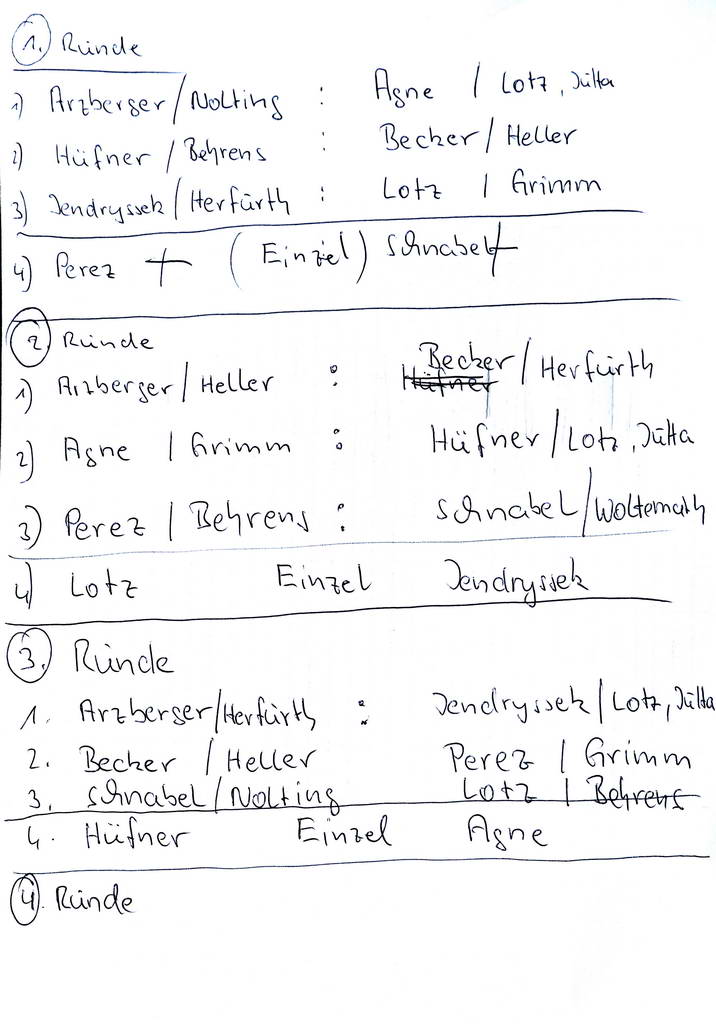 1. Runde
1) Arzberger/Nolting : Agne / Lotz, Jutta
2) Hüfner / Behrens : Becker / Heller
3) Jendryssek / Herfurth : Lotz / Grimm
4) Perez + (Einzel) Schnabel +
2 Runde
1) Arzberger / Heller : Becker / Herfurth
Hüfner
2) Agne / Grimm : Hüfner / Lotz, Jutta
3) Perez / Behrens : Schnabel / Woltemath
4) Lotz Einzel Jendryssek
3. Runde
1. Arzberger/Herfurth : Jendryssek / Lotz, Jutta
2. Becker / Heller Perez / Grimm
3. Schnabel / Nolting Lotz / Behrens
4. Hüfner Einzel Agne
4. Runde